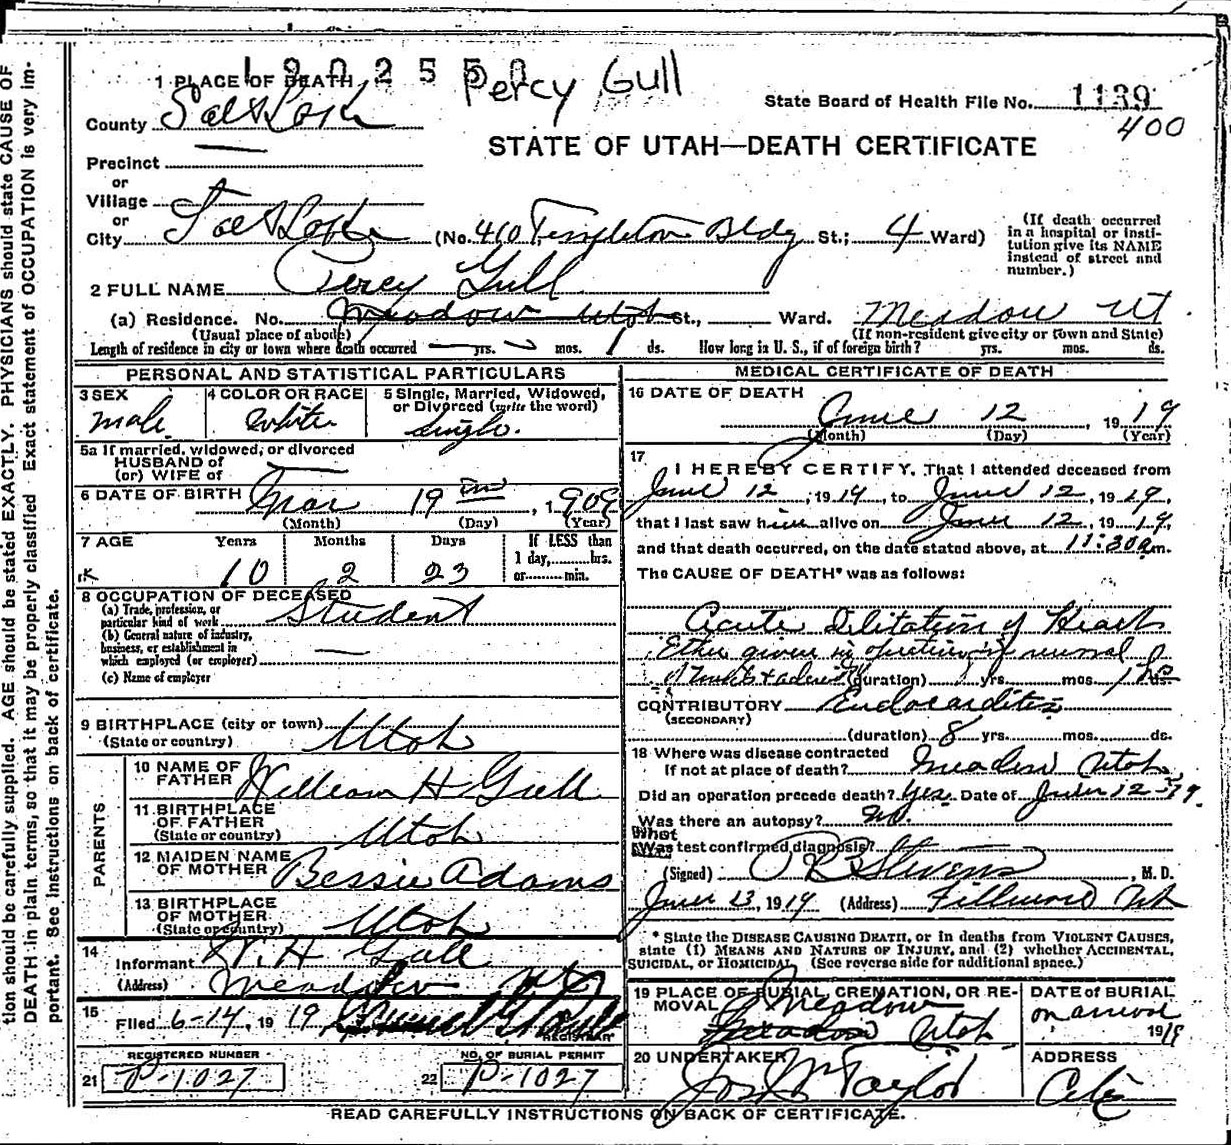 1902550 Percy Gull
State Board of Health File No. 1139
400
1 PLACE OF DEATH
County Salt Lake
STATE OF UTAH—DEATH CERTIFICATE
Precinct
or
Village
or
City Salt Lake (No. 410 Templeton Bldg St.; 4 Ward)
(If death occurred in a hospital or institution give its NAME instead of street and number.)
2 FULL NAME Percy Gull
(a) Residence. No. Meadow Utah St., Ward. Meadow Ut
(Usual place of abode) (If non-resident give city or town and State)
Length of residence in city or town where death occurred — yrs. mos. 1 ds. How long in U. S., if of foreign birth? yrs. mos. ds.
PERSONAL AND STATISTICAL PARTICULARS
3 SEX
male
4 COLOR OR RACE
white
5 Single, Married, Widowed, or Divorced (write the word)
single.
5a If married, widowed, or divorced
HUSBAND of
(or) WIFE of
6 DATE OF BIRTH Mar 19, 1909
(Month) (Day) (Year)
7 AGE Years Months Days If LESS than
1 day,........hrs.
or.........min.
10 2 23
8 OCCUPATION OF DECEASED
(a) Trade, profession, or particular kind of work Student
(b) General nature of industry, business, or establishment in which employed (or employer) —
(c) Name of employer
9 BIRTHPLACE (city or town)
(State or country) Utah
PARENTS
10 NAME OF FATHER William H Gull
11 BIRTHPLACE OF FATHER
(State or country) Utah
12 MAIDEN NAME OF MOTHER Bessie Adams
13 BIRTHPLACE OF MOTHER
(State or country) Utah
14
Informant W. H Gull
(Address) Meadow Utah
15
Filed 6-14, 19 19
REGISTRAR
REGISTERED NUMBER
21 P-1027
NO. OF BURIAL PERMIT
22 P-1027
MEDICAL CERTIFICATE OF DEATH
16 DATE OF DEATH
June 12, 19 19
(Month) (Day) (Year)
17
I HEREBY CERTIFY, That I attended deceased from
June 12, 1919, to June 12, 1919,
that I last saw him alive on June 12, 1919,
and that death occurred, on the date stated above, at 11:30am.
The CAUSE OF DEATH* was as follows:
Acute Dilitation of Heart
Ether given in operation of removal
of (duration) yrs. mos. 1 hrs
CONTRIBUTORY Endocarditis
(SECONDARY)
(duration) 8 yrs. mos. ds.
18 Where was disease contracted
If not at place of death? Meadow Utah
Did an operation precede death? Yes. Date of June 12-19.
Was there an autopsy? no.
What test confirmed diagnosis?
(Signed) Stevens, M. D.
June 13, 1919 (Address) Fillmore Ut
* State the DISEASE CAUSING DEATH, or in deaths from VIOLENT CAUSES, state (1) MEANS AND NATURE OF INJURY, and (2) whether ACCIDENTAL, SUICIDAL, or HOMICIDAL. (See reverse side for additional space.)
19 PLACE OF BURIAL, CREMATION, OR REMOVAL Meadow
Utah
DATE of BURIAL
on arrival
1919
20 UNDERTAKER
Jos Wm Taylor
ADDRESS
City
READ CAREFULLY INSTRUCTIONS ON BACK OF CERTIFICATE.
tion should be carefully supplied. AGE should be stated EXACTLY. PHYSICIANS should state CAUSE OF
DEATH in plain terms, so that it may be properly classified. Exact statement of OCCUPATION is very im-
portant. See instructions on back of certificate.